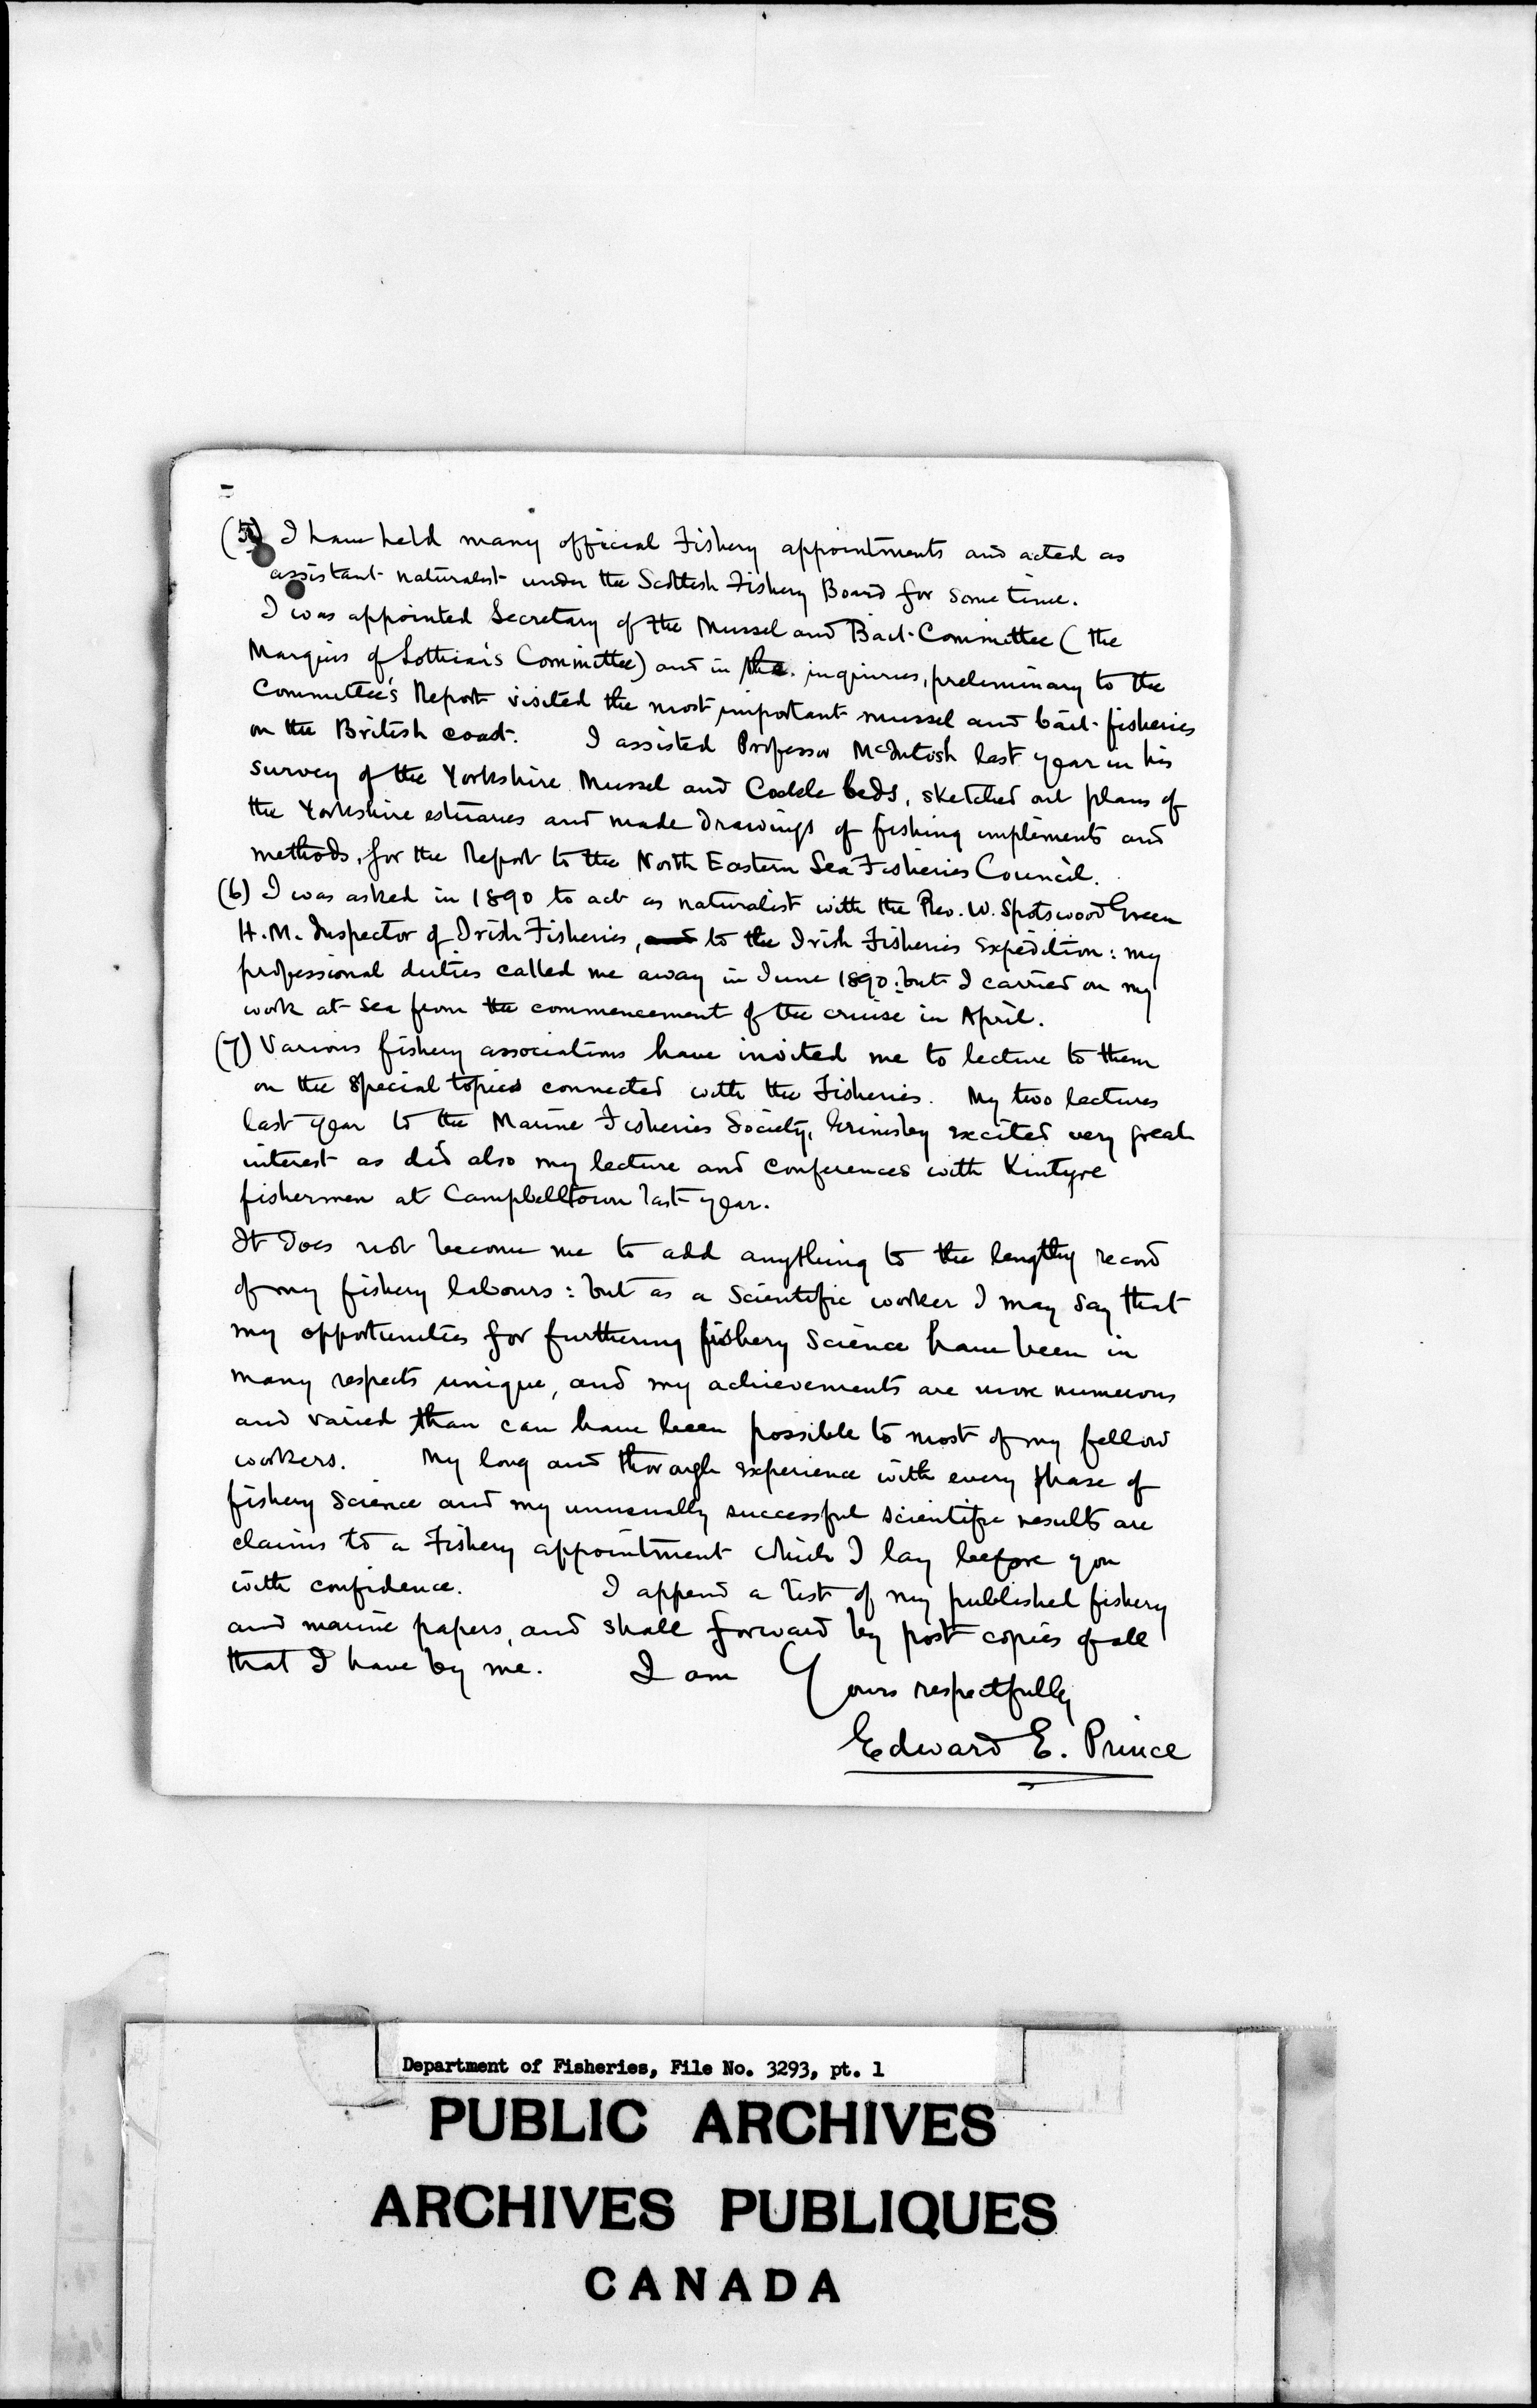 (5) I have held many official Fishery appointments and acted as
assistant naturalist under the Scottish Fishery Board for some time.
I was appointed Secretary of the Mussel and Bait Committee (the
Marquis of Lothian's Committee) and in the inquiries, preliminary to the
Committee's Report visited the most important mussel and bait fisheries
on the British coast. I assisted Professor McIntosh last year in his
survey of the Yorkshire Mussel and Cockle beds, sketched out plans of
the Yorkshire estuaries and made drawings of fishing implements and
methods, for the Report to the North Eastern Sea Fisheries Council.
(6) I was asked in 1890 to act as naturalist with the Rev. W. Spotswood Green
H.M. Inspector of Irish Fisheries, and to the Irish Fisheries Expedition: my
professional duties called me away in June 1890: but I carried on my
work at sea from the commencement of the cruise in April.
(7) Various fishery associations have invited me to lecture to them
on the special topics connected with the Fisheries. My two lectures
last year to the Marine Fisheries Society, Grimsby excited very great
interest as did also my lecture and conferences with Kintyre
fishermen at Campbelltown last year.
It does not become me to add anything to the lengthy record
of my fishery labours: but as a scientific worker I may say that
my opportunities for furthering fishery science have been in
many respects unique, and my achievements are more numerous
and varied than can have been possible to most of my fellow
workers. My long and thorough experience with every phase of
fishery science and my unusually successful scientific results are
claims to a Fishery appointment which I lay before you
with confidence. I append a list of my published fishery
and marine papers, and shall forward by post copies of all
that I have by me. I am Yours respectfully
Edward E. Prince
Department of Fisheries, File No. 3293, pt. 1
PUBLIC ARCHIVES
ARCHIVES PUBLIQUES
CANADA